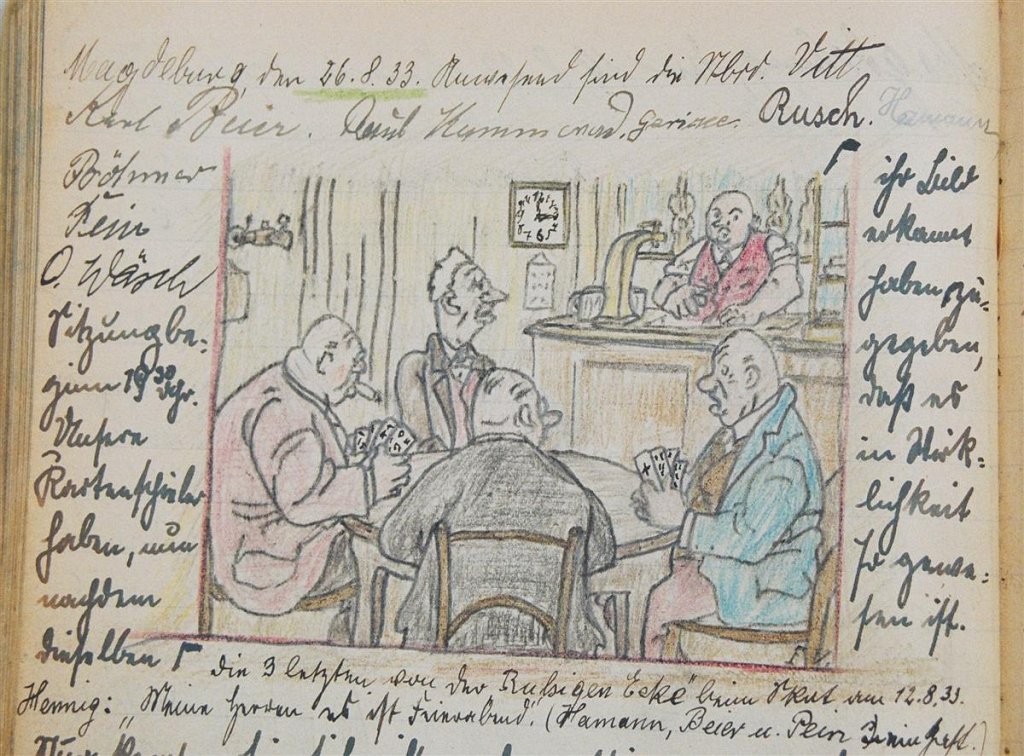 Magdeburg, den 26.8.33. Anwesend sind die Vbrd. Vitt
Karl Beier. Paul Hammerand. Gericke. Rusch. Hamann
Böhmer
Pein
O. Wäsch
Sitzungbe-
ginn 19³⁰ Uhr.
Unsere
Kartenspieler
haben, nun
nachdem
dieselben Γ
Γ ihr Bild
erkannt
haben, zu-
gegeben,
daß es
in Wirk-
lichkeit
so gewe-
sen ist.
Die 3 letzten von der „Ruhsigen Ecke" beim Skat am 12.8.33.
Hennig: „Meine Herren es ist Feierabend." (Hamann, Beier u. Pein